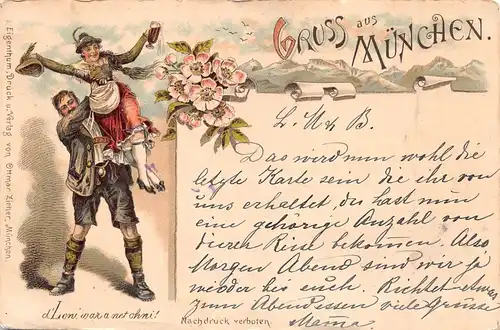 GRUSS aus
MÜNCHEN.
L. M & B.
Das wird nun wohl die
letzte Karte sein die ihr von
uns erhaltet, du hast nun
eine gehörige Anzahl von
dieser Reise bekommen. Also
Morgen Abend sind wir ja
wieder bei euch. Richtet etwas
zum Abendessen viele Grüsse
Mama
d'Loni wär a net ohni!
Nachdruck verboten.
Eigenthum, Druck u. Verlag von Ottmar Zieher, München.